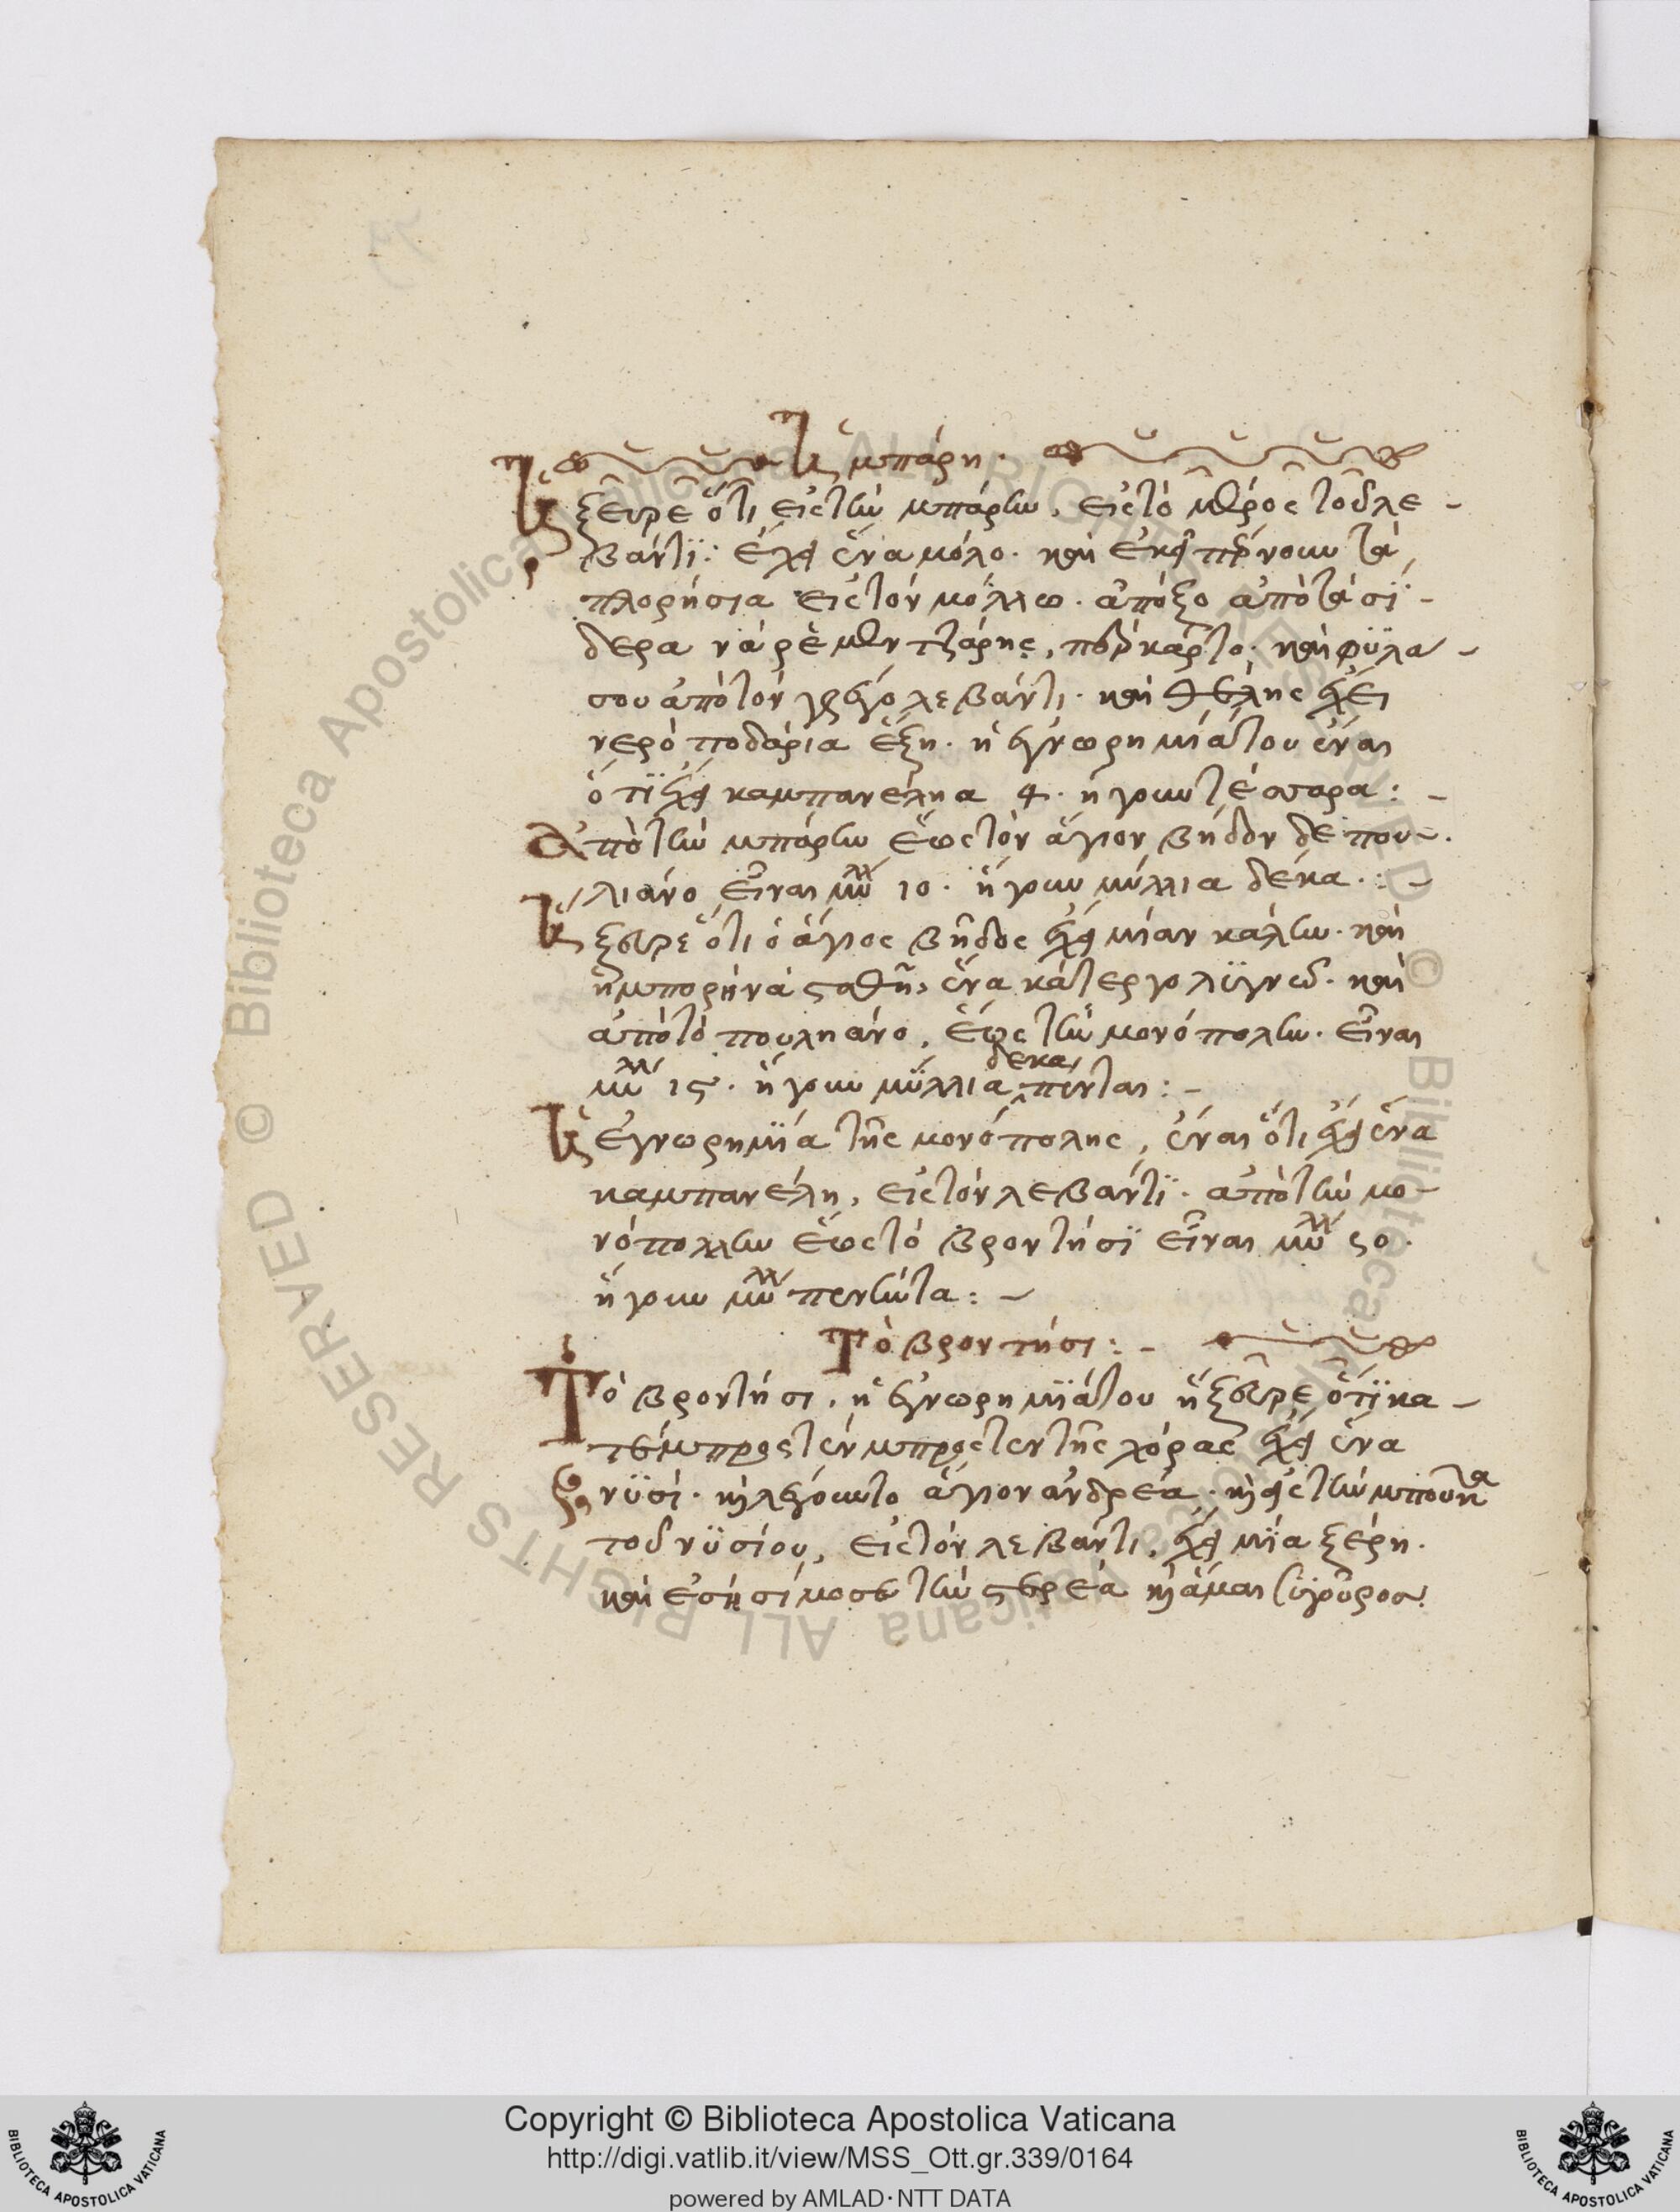 Ἡ μπάρη·
Ἤξευρε ὅτι εἰς τὴν μπάρην, εἰς τὸ μέρος τοῦ λε-
βάντϊ: ἔχει ἕνα μόλο· καὶ ἐκεῖ πέρνουν τὰ
πλορήσια εἰς τόν μόλλω· ἀπόξο ἀπὸ τὰ σϊ-
δερα νά ρὲμεντζάρης, πὲρ κάρτο· καὶ φϋλα-
σου ἀπὸ τόν γρέγο λεβάντι· καὶ θέλης ἔχει
νερό ποδάρια ἕξη· ἡ ἐγνωρημία του ἔναι
ὅτϊ ἔχει καμπανέλλια 4· ἤγουν τέσσαρα:-
Ἀπὸ τὴν μπάρην ἕως τὸν ἅγιον βήδον δὲ που-
λιάνο εἶναι μῦλλ 10· ἤγουν μύλλια δέκα:-
Ἤξευρε ὅτι ὁ ἅγιος βῆδος ἔχει μίαν κάλην· καὶ
ἠμπορῆ νά σταθῆ, ἕνα κάτεργο λϊγνὸ· καὶ
ἀπὸ τὸ πουληάνο, ἕως τὴν μονόπολην· εἶναι
μῦλλ 15· ἤγουν μΰλλια δεκα πένται:-
Ἡ ἐγνωρημϊά τῆς μονόπολης, ἔναι ὅτι ἔχει ἕνα
καμπανέλη, εἰς τόν λεβάντϊ· ἀπὸ τὴν μο-
νόπολλην ἕως τὸ βροντήσϊ εἶναι μῦλλ 50·
ἤγουν μῦλλ πενήντα:-
Τὸ βροντήσι:-
Τὸ βροντήσι, ἡ ἐγνωρημϊά του ἤξευρε ὅτϊ κα-
τέμπροστεν μπροστεν τῆς χόρας ἔχει ἕνα
νϋσί· καὶ λέγουν το ἅγιον ἀνδρέα· καὶ εἰς τὴν μπούντα
τοῦ νϋσίου, εἰς τόν λεβάντι, ἔχει μΐα ξέρη·
καὶ ἐσὴ σίμοσε τὴν στερεά